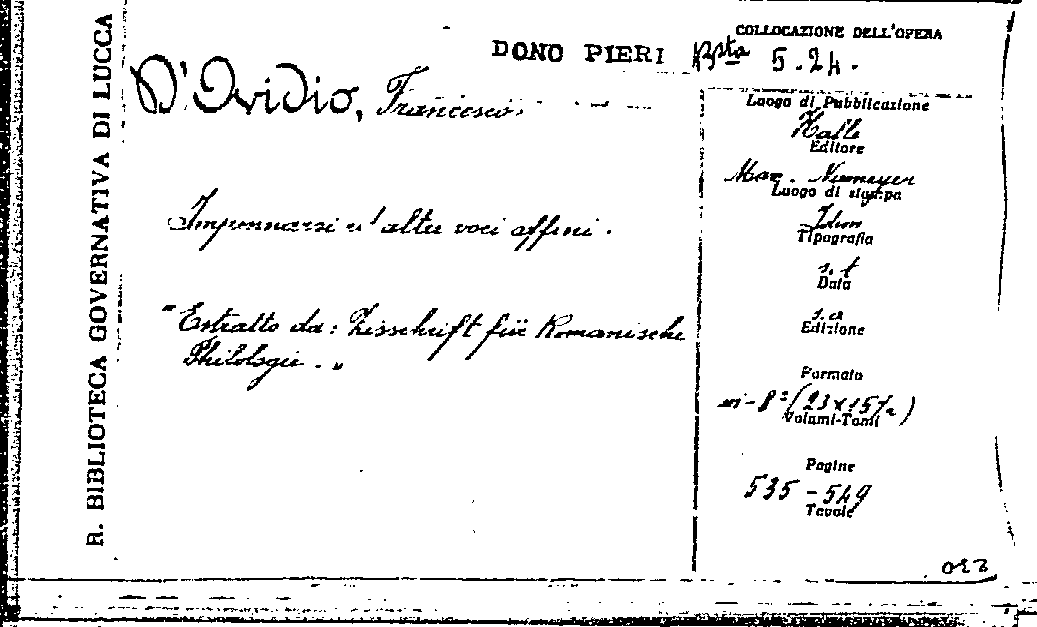 R. BIBLIOTECA GOVERNATIVA DI LUCCA
DONO PIERI
COLLOCAZIONE DELL'OPERA
Bsta 5.24.
D'Ovidio, Francesco.
Impennarsi e altre voci affini.
"Estratto da: Zisschrift für Romanische
Philologie."
Luogo di Pubblicazione
Halle
Editore
Max. Niemeyer
Luogo di stampa
Idem
Tipografia
s. t
Data
s. a
Edizione
Formato
in-8° (23 x 15½)
Volumi-Tomi
Pagine
535-549
Tavole